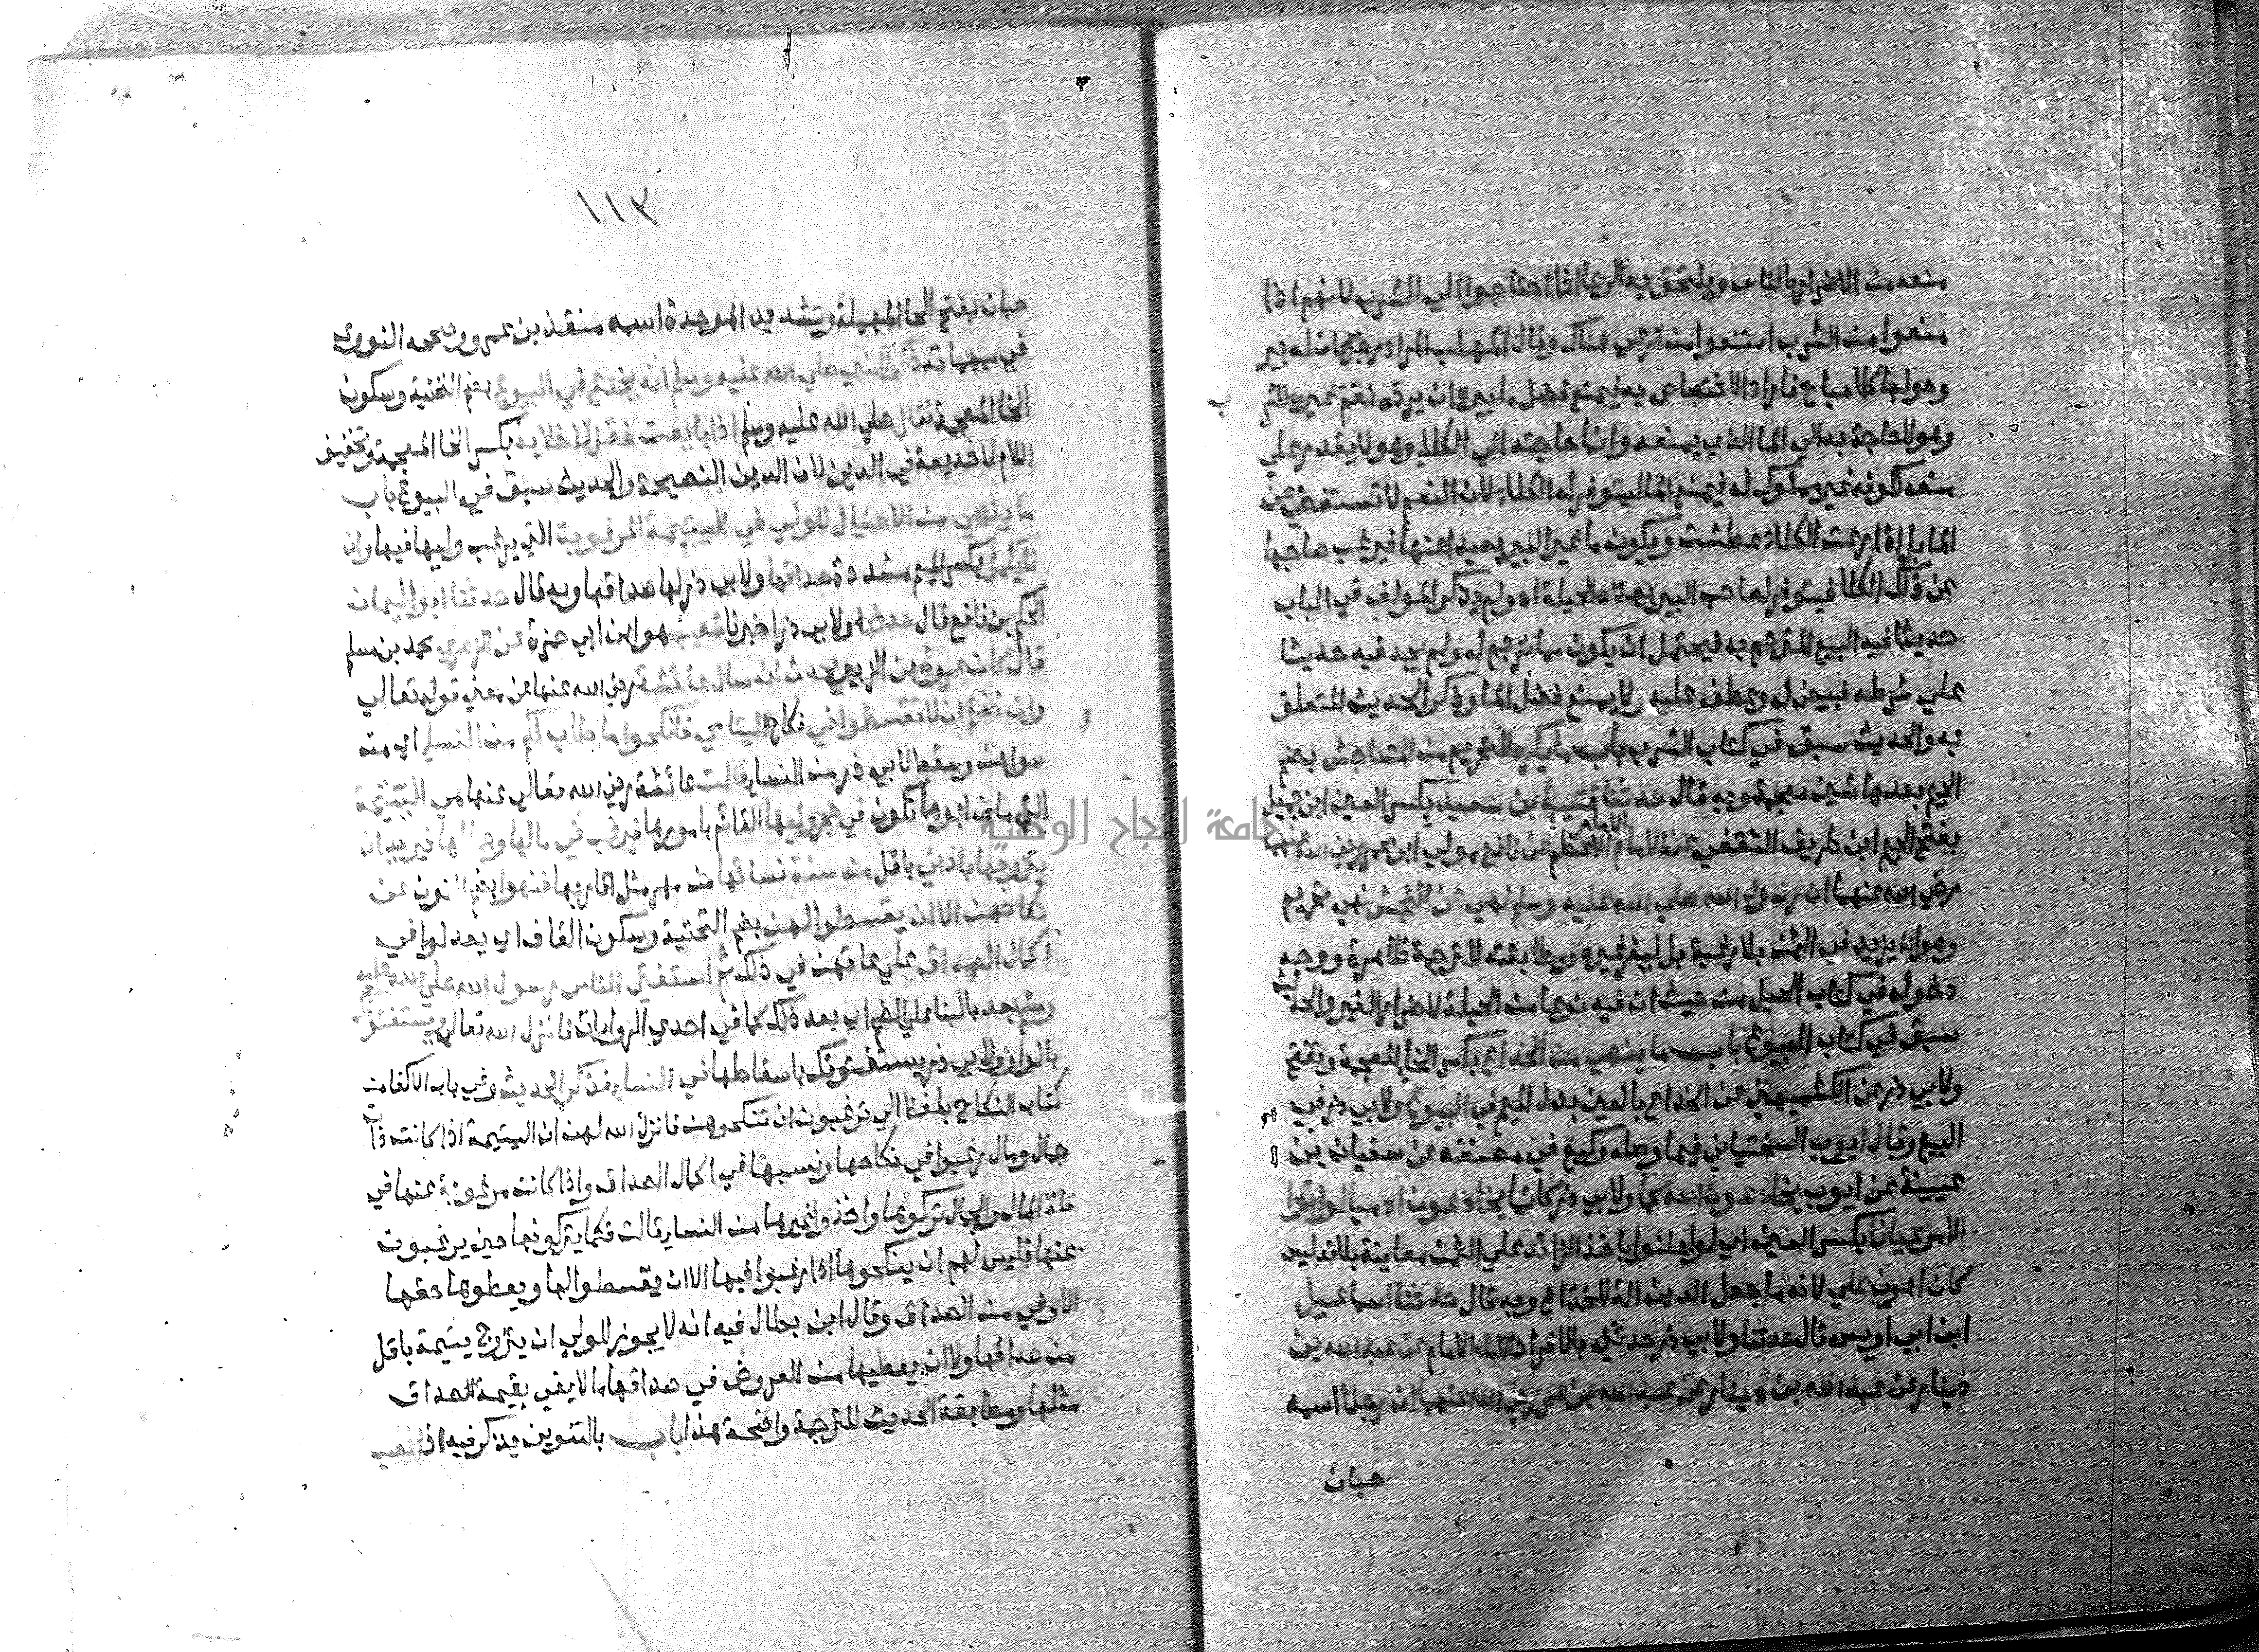 منعه من الاضرار بالناس ويلتحق به الرعا اذا احتاجوا الي الشرب لانهم اذا
منعوا من الشرب امتنعوا من الرعي هناك وقال المهلب المراد رجل كان له بير
وحولها كلا مباح فاراد الاختصاص به فيمنع فضل ما بيره ان يرده نعم غيره للشر ب
وهو لا حاجة به الي الما الذي يمنعه وانما حاجته الي الكلاء وهو لا يقدر علي
منعه لكونه غير مملوك له فيمنع الما ليتوفر له الكلاء لان النعم لا تستغني عن
الما بل اذا رعت الكلاء عطشت ويكون ما غير البير بعيدا عنها فيرغب صاحبها
عن ذلك الكلا فيتوفر لصاحب البير بهذه الحيلة اه ولم يذكر المولف في الباب
حديثا فيه البيع المترجم به فيحتمل ان يكون مما ترجم له ولم يجد فيه حديثا
علي شرطه فبيض له وعطف عليه ولا يمنع فضل الما وذكر الحديث المتعلق
به والحديث سبق في كتاب الشرب باب ما يكره للتحريم من التناجش بضم
الجيم بعدها شين معجمة وبه قال حدثنا قتيبة بن سعيد بكسر العين ابن جميل
بفتح الجيم ابن طريف الثقفي عن الامام الاعظم عن نافع مولي ابن عمر رضي الله عنهما
رضي الله عنهما ان رسول الله صلي الله عليه وسلم نهي عن النجش نهي تحريم
وهو ان يزيد في الثمن بلا رغبة بل ليغر غيره ومطابقته للترجمة ظاهرة ووجه
دخوله في كتاب الحيل من حيث ان فيه نوعا من الحيلة لاضرار الغير والحديث
سبق في كتاب البيوع باب ما ينهي من الخداع بكسر الخا المعجمة وتفتح
ولابي ذر عن الكشميهني عن الخداع بالعين بدل الميم في البيوع ولابي ذر في
البيع وقال ايوب السختياني فيما وصله وكيع في مصنفه عن سفيان بن
عيينة عن ايوب يخادعون الله كما ولابي ذر كانما يخادعون ادميا لو اتوا
الامر عيانا بكسر العين اي لو اعلنوا باخذ الزائد علي الثمن معاينة بلا تدليس
كان اهون علي لانه ما جعل الدين الة للخداع وبه قال حدثنا اسماعيل
ابن ابي اويس قال حدثنا ولابي ذر حدثني بالافراد الامام عن عبد الله بن
دينار عن عبد الله بن دينار عن عبد الله بن عمر رضي الله عنهما ان رجلا اسمه
حبان
١١٣
حبان بفتح الحا المهملة وتشديد الموحدة اسمه منقذ بن عمرو وصححه النووي
في مبهماته ذكر للنبي صلي الله عليه وسلم انه يخدع في البيوع بضم التحتية وسكون
الخا المعجمة فقال صلي الله عليه وسلم اذا بايعت فقل لا خلابه بكسر الخا المعجمة وتخفيف
اللام لا خديعة في الدين لان الدين النصيحة والحديث سبق في البيوع باب
ما ينهي من الاحتيال للولي في اليتيمة المرغوبة التي يرغب وليها فيها وان
لا يكمل بكسر الميم مشددة صداقها ولابي ذر لها صداقها وبه قال حدثنا ابو اليمان
الحكم بن نافع قال حدثنا ولابي ذر اخبرنا شعيب هو ابن ابي حمزة عن الزهري محمد بن مسلم
قال كان عروة بن الزبير يحدث انه سال عائشة رضي الله عنها عن معني قوله تعالي
وان خفتم ان لا تقسطوا في نكاح اليتامي فانكحوا ما طاب لكم من النساء اي من
سواهن وسقط لابي ذر من النساء قالت عائشة رضي الله تعالي عنها هي اليتيمة
التي مات ابوها تكون في حجر وليها القائم بامورها فيرغب في مالها وجمالها فيريد ان
يتزوجها بادني باقل من سنة نسائها من مهر مثل اقاربها فنهوا بضم النون عن
نكاحهن الا ان يقسطوا لهن بضم التحتية وسكون القاف اي يعدلوا في
اكمال الصداق علي عادتهن في ذلك ثم استفتي الناس رسول الله صلي الله عليه
وسلم بعد بالبنا علي الضم اي بعد ذلك كما في احدي الروايات فانزل الله تعالي ويستفتونك
بالواو ولابي ذر يستفتونك باسقاطها في النساء فذكر الحديث وفي باب الاكفا من
كتاب النكاح بلفظ الي ترغبون ان تنكحوهن فانزل الله لهن ان اليتيمة اذا كانت ذات
جمال ومال رغبوا في نكاحها ونسبها في اكمال الصداق واذا كانت مرغوبة عنها في
قلة المال والجمال تركوها واخذوا غيرها من النساء قالت فكما يتركونها حين يرغبون
عنها فليس لهم ان ينكحوها اذا رغبوا فيها الا ان يقسطوا لها ويعطوها حقها
الاوفي من الصداق وقال ابن بطال فيه انه لا يجوز للولي ان يتزوج يتيمة باقل
من صداقها ولا ان يعطيها من العروض في صداقها ما لا يفي بقيمة الصداق
مثلها ومطابقة الحديث للترجمة واضحة هذا باب بالتنوين يذكر فيه اذا غصب
جامعة النجاح الوطنية